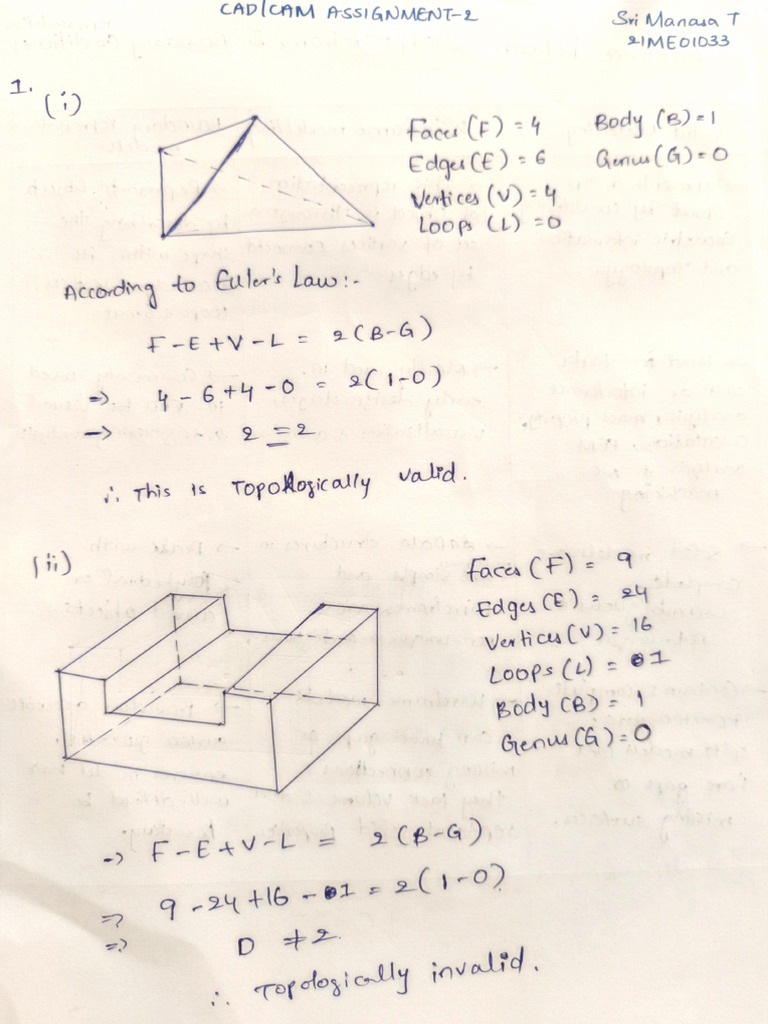 CAD/CAM ASSIGNMENT-2
Sri Manasa T
21ME01033
1.
(i)
Faces (F) = 4 Body (B) = 1
Edges (E) = 6 Genus (G) = 0
Vertices (V) = 4
Loops (L) = 0
According to Euler's Law:-
F - E + V - L = 2(B-G)
⇒ 4 - 6 + 4 - 0 = 2(1-0)
→ 2 = 2
∴ This is Topologically valid.
(ii)
Faces (F) = 9
Edges (E) = 24
Vertices (V) = 16
Loops (L) = 1
Body (B) = 1
Genus (G) = 0
⇒ F - E + V - L = 2(B-G)
⇒ 9 - 24 + 16 - 1 = 2(1-0)
⇒ 0 ≠ 2
∴ Topologically invalid.